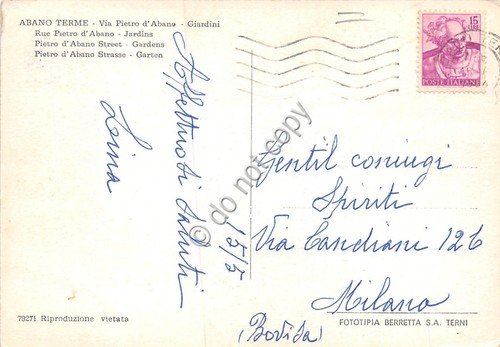 ABANO TERME - Via Pietro d'Abano - Giardini
Rue Pietro d'Abano - Jardins
Pietro d'Abano Street - Gardens
Pietro d'Abano Strasse - Garten
15
LIRE
POSTE ITALIANE
Affettuosi saluti
Loina
15/5
Gentil coniugi
Spiriti
Via Candiani 126
Milano
(Bovisa)
© do not copy
79271 Riproduzione vietata
FOTOTIPIA BERRETTA S.A. TERNI